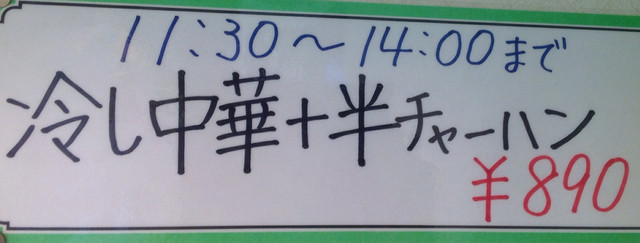 11:30～14:00まで
冷し中華+半チャーハン
¥890